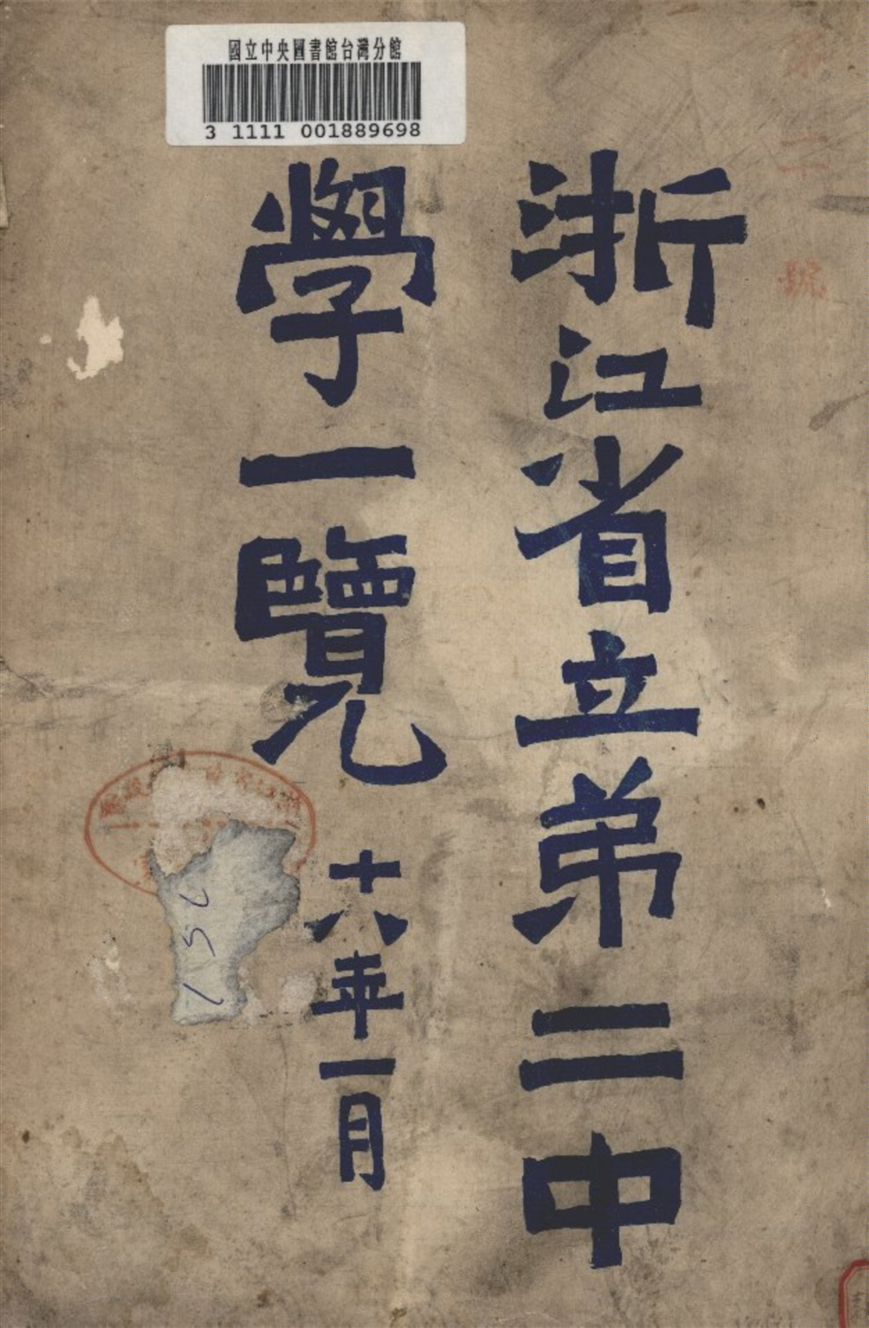 國立中央圖書館台灣分館
3 1111 001889698
浙江省立弟二中
學一覽
十六年一月
號